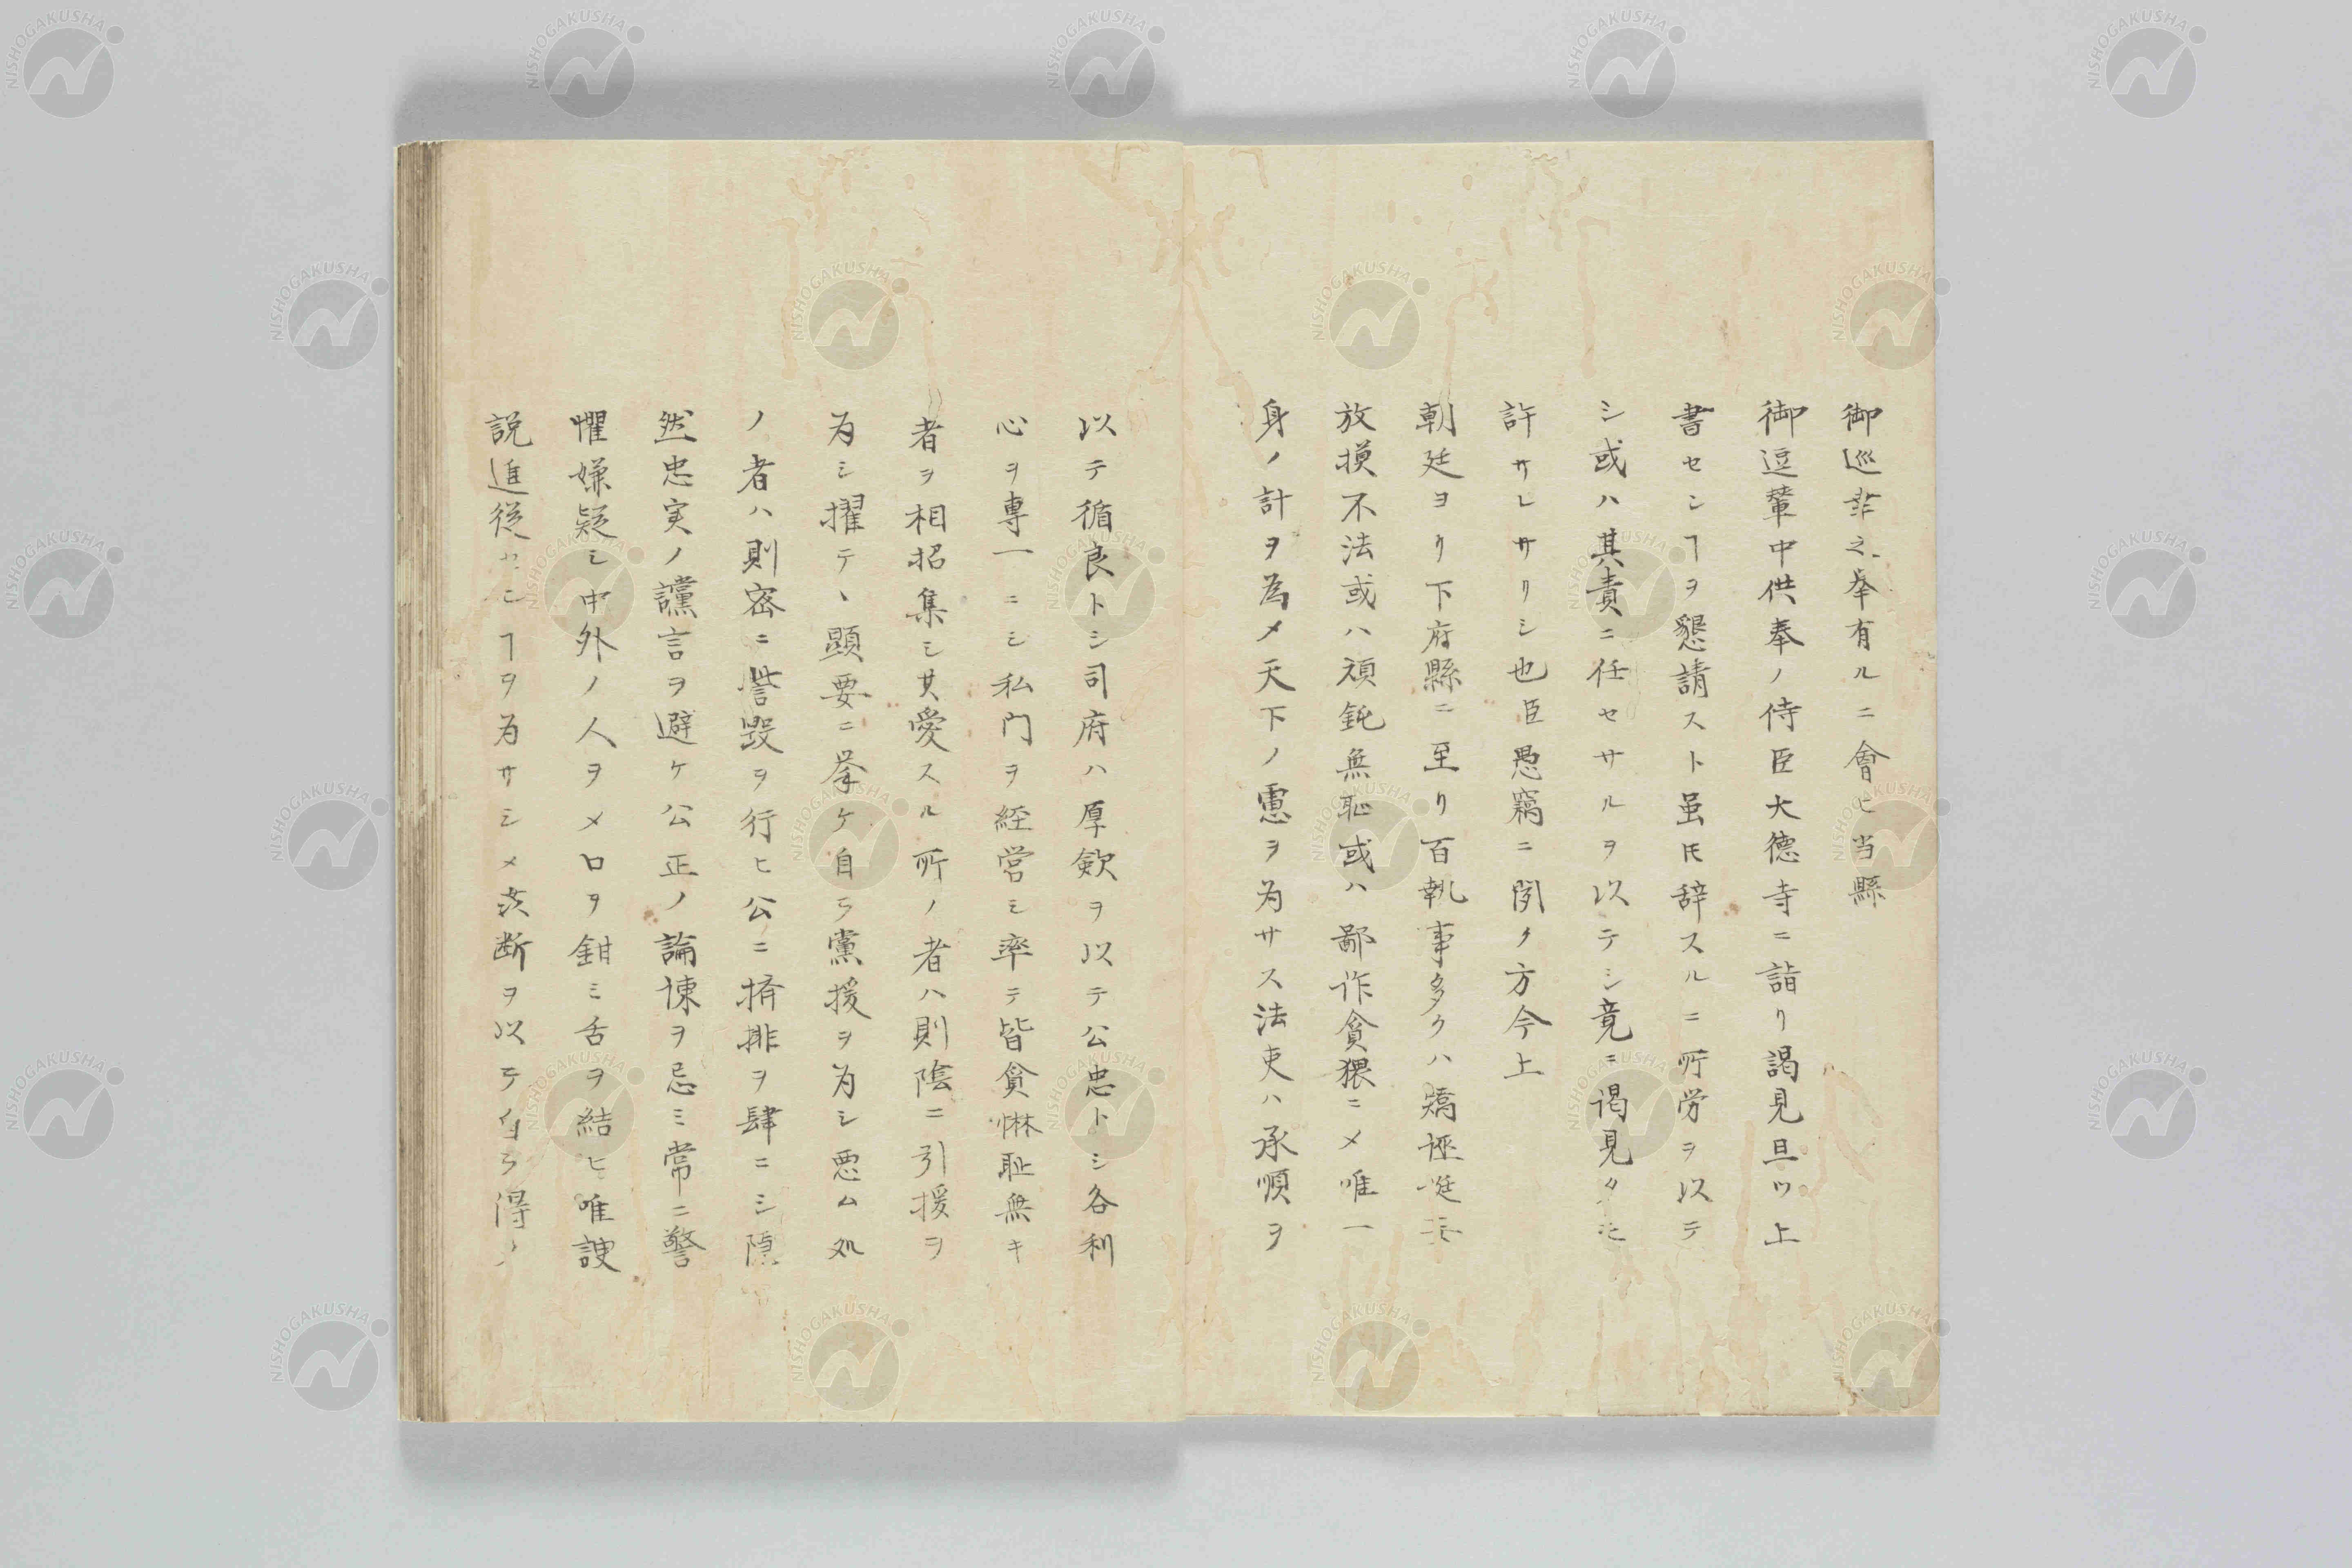 御巡幸之挙有ルニ會ヒ当縣
御逗輦中供奉ノ侍臣大徳寺ニ詣リ謁見旦ツ上
書センヿヲ懇請スト虽𪜈辞スルニ所労ヲ以テ
シ或ハ其責ニ任セサルヲ以テシ竟ニ谒見タモ
許サレサリシ也臣愚竊ニ聞ク方今上
朝廷ヨリ下府縣ニ至リ百執事多クハ矯
放摸不法或ハ頑鈍無恥或ハ鄙詐貪猥ニメ唯一
身ノ計ヲ為メ天下ノ慮ヲ為サス法吏ハ承順ヲ
以テ循良トシ司府ハ厚歛ヲ以テ公忠トシ各利
心ヲ専一ニシ私門ヲ経営シ率テ皆貪惏恥無キ
者ヲ相招集シ其愛スル所ノ者ハ則陰ニ引援ヲ
為シ擢テ、顕要ニ挙ケ自ラ黨援ヲ為シ悪ム処
ノ者ハ則密ニ訾毀ヲ行ヒ公ニ擠排ヲ肆ニシ隠
然忠実ノ讜言ヲ避ケ公正ノ論諫ヲ忌ミ常ニ警
懼嫌疑シ中外ノ人ヲメ口ヲ鉗ミ舌ヲ結ヒ唯諛
説進従センヿヲ為サシメ決断ヲ以テ自ラ得ノ